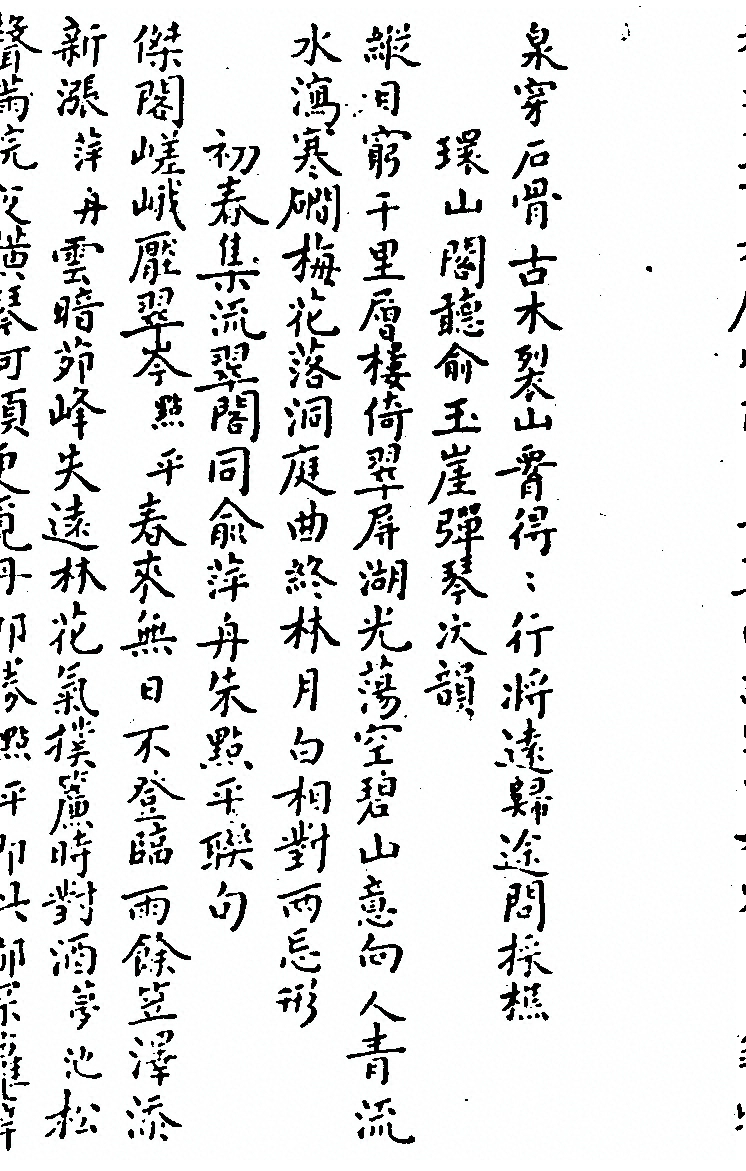 泉穿石骨古木裂山霄得〻行將遠歸途問採樵
環山閣聽俞玉崖彈琴次韻
縱目窮千里層樓倚翠屏湖光蕩空碧山意向人青流
水瀉寒磵梅花落洞庭曲終林月白相對兩忘形
初春集流翠閣同俞萍舟朱點平聯句
傑閣嵯峨壓翠岑點平春來無日不登臨雨餘笠澤添
新漲萍舟雲暗茆峰失遠林花氣撲簾時對酒夢池松